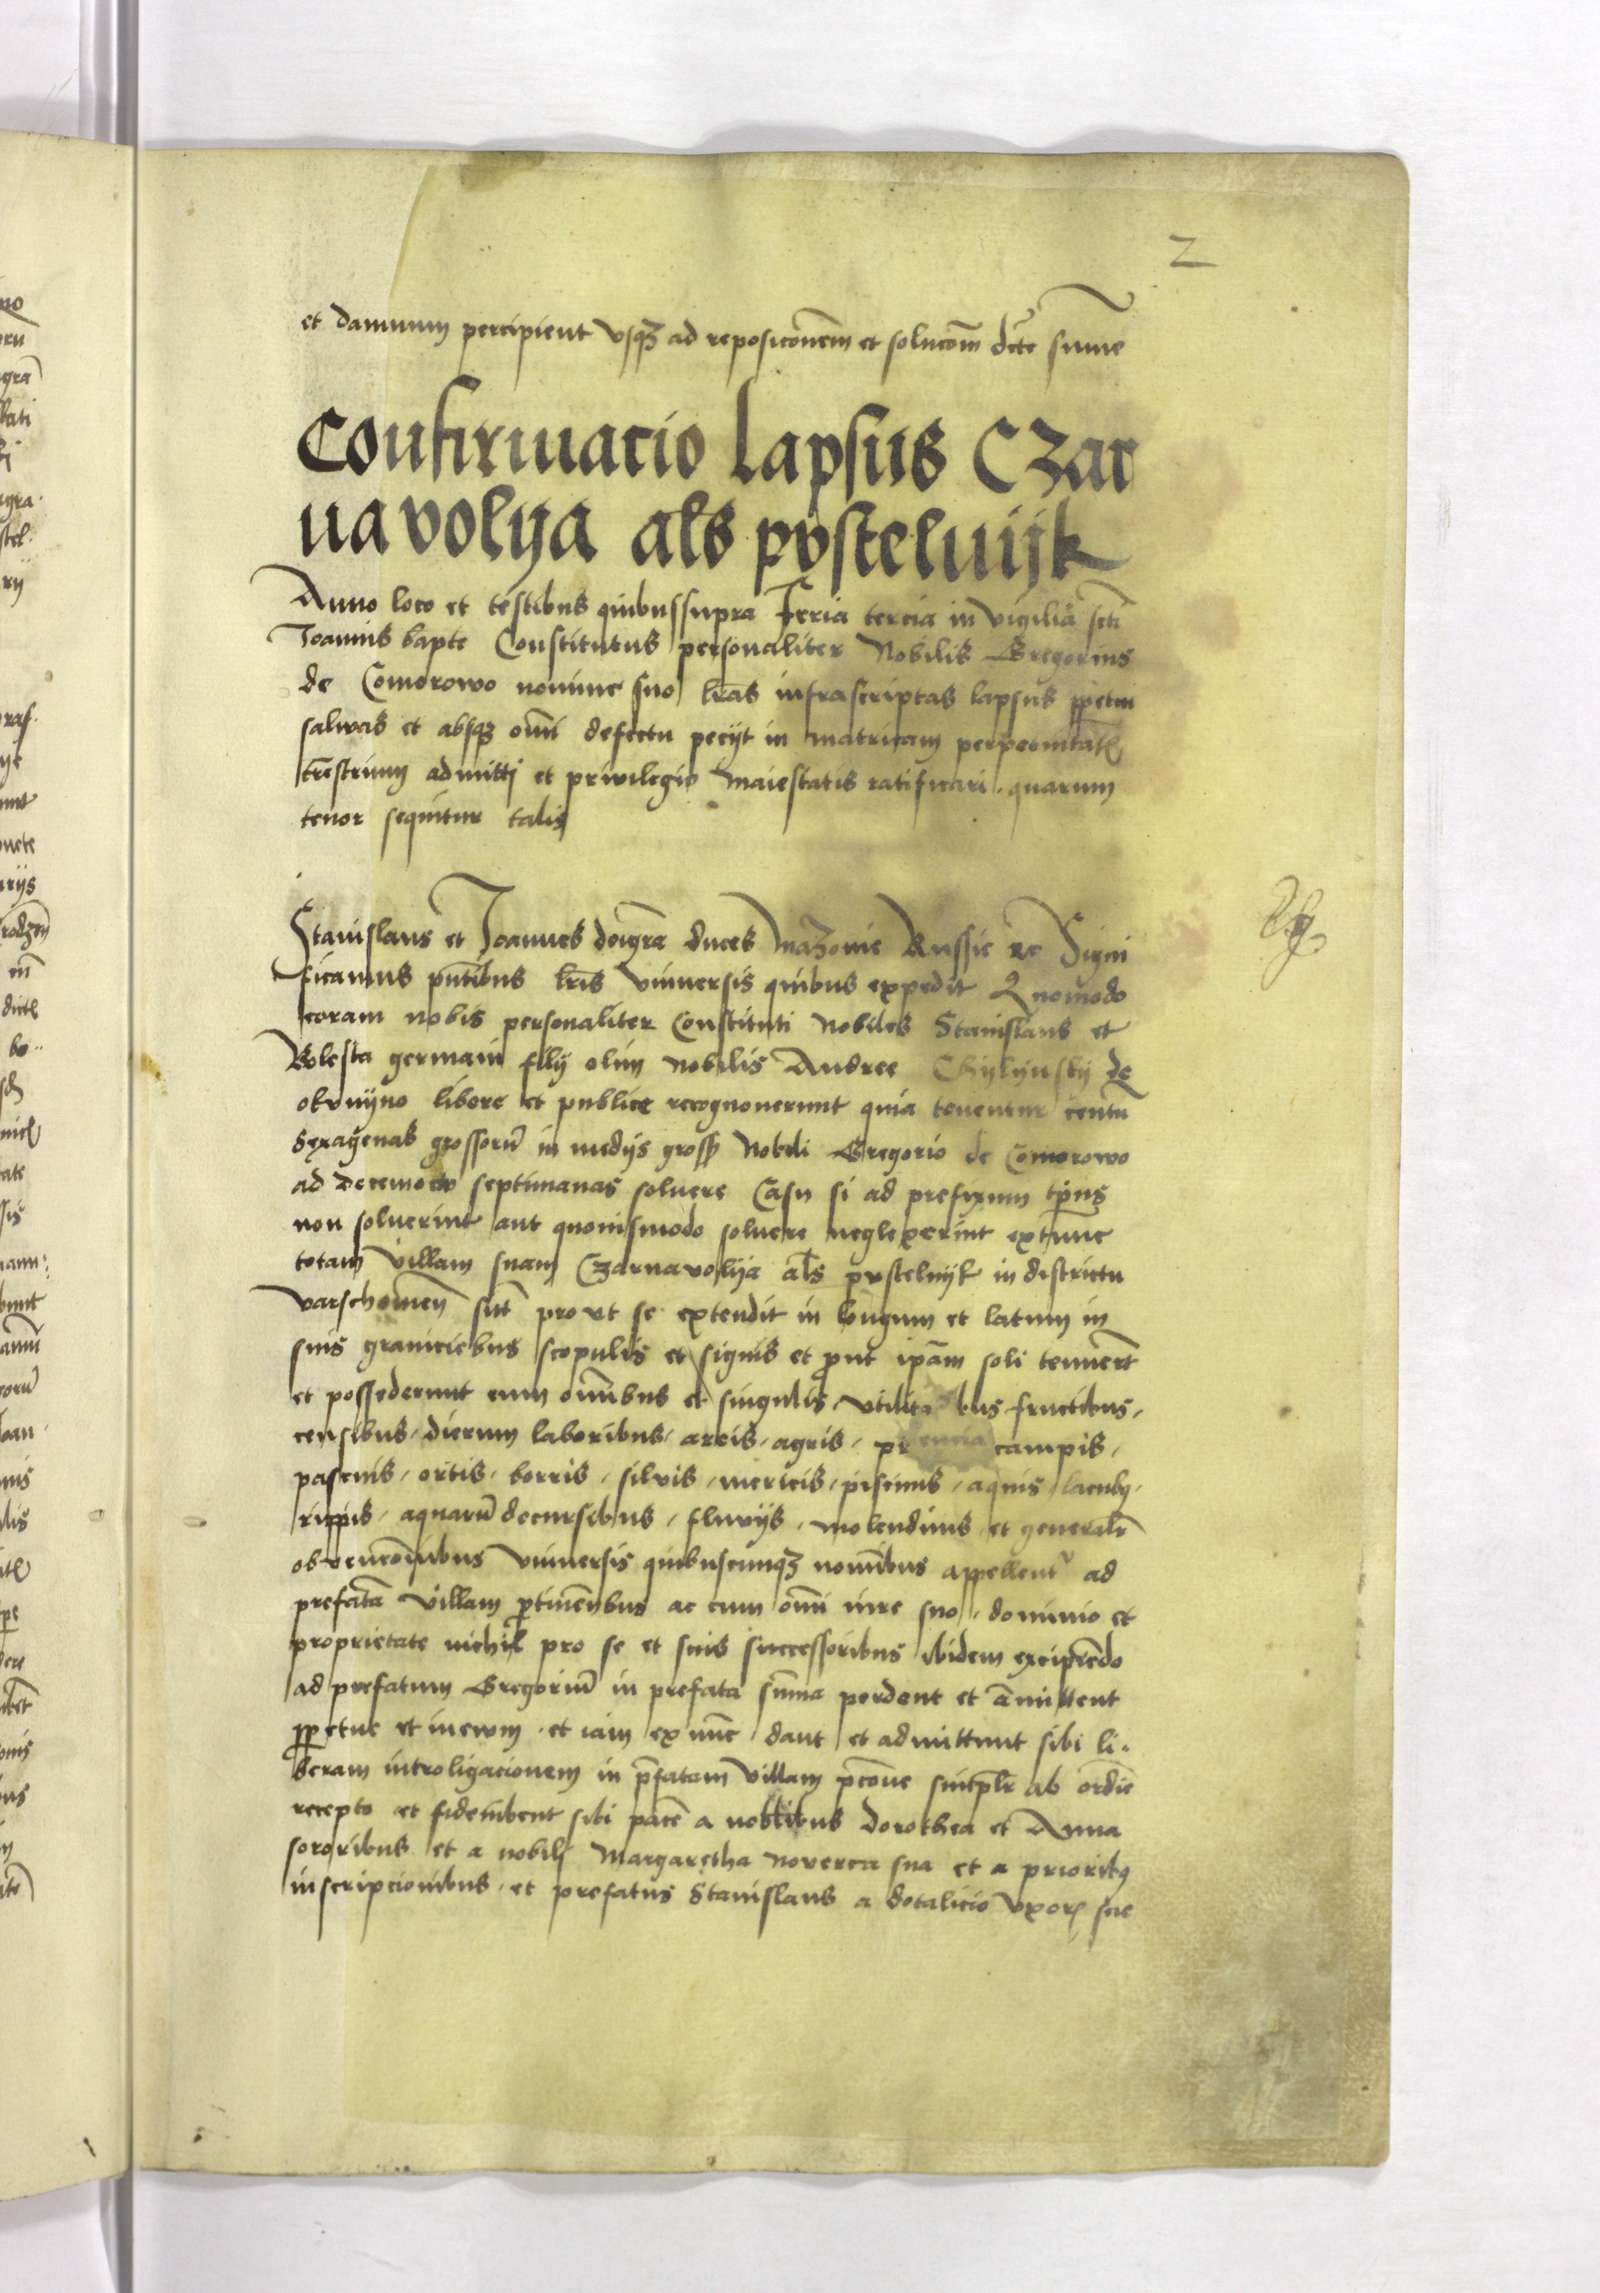 2
et damnum percipient vsqz ad reposiconem et solucom dcte summe
Confirmacio lapsus Czar
navolya als pvstelnijk
Anno loco et testibus quibussupra Feria tercia in vigilia scti
Joannis bapte Constitutus personaliter Nobilis Gregorius
de Comorowo nomine suo lras infrascriptas lapsus ppetui
salwas et absqz omni defectu pecijt in matricam perpetuitat
trestrium admitti et priwilegio Maiestatis ratificari. quarum
tenor sequitur talis
Stanislaus et Joannes deigra duces Mazouie Russie rc Signi
ficamus pntibus lris vniuersis quibus expedit Quomodo
coram nobis personaliter Constituti Nobiles Stanislaus et
Bolesta germani filij olim nobilis Andree Chylynsky de
okvnyno libere et publice recognouerunt quia tenentur centu
sexagenas grossoru in medijs gross Nobili Gregorio de Comorowo
ad decemocto septimanas soluere Casu si ad prefixum tpus
non soluerint aut quouismodo soluere neglexerint extunc
totam villam suam Czarnavolya als pvstelnyk in districtu
varschouien sitt pro vt se extendit in longum et latum in
suis graniciebus scopulis et signis et prout ipam soli tenuert
et possederunt cum omnibus et singulis, vtilita bus fructibus,
censibus, dierum laboribus, areis, agris, pr encia campis,
pascuis, ortis, borris, siluis, mericis, piscinis, aquis, lacubz,
rippis, aquaru decursibus, fluvijs, molendinis et generalr
obvencoibus vniuersis quibuscunqz nominibus appellent ad
prefatam villam ptinentibus ac cum omni iure suo, dominio et
proprietate nichil pro se et suis successoribus ibidem excipiendo
ad prefatum Gregoriu in prefata suma perdent et amittent
ppetue et inewm. et iam ex nunc dant et admittunt sibi li-
beram introligacionem in pfatam villam pcone simplr ab ordine
recepto et fideiubent sibi pace a nobilibus Dorothea et Anna
sororibus et a nobili Margaretha noverca sua et a prioribz
inscripcionibus. et prefatus Stanislaus a dotalicio vxoris sue